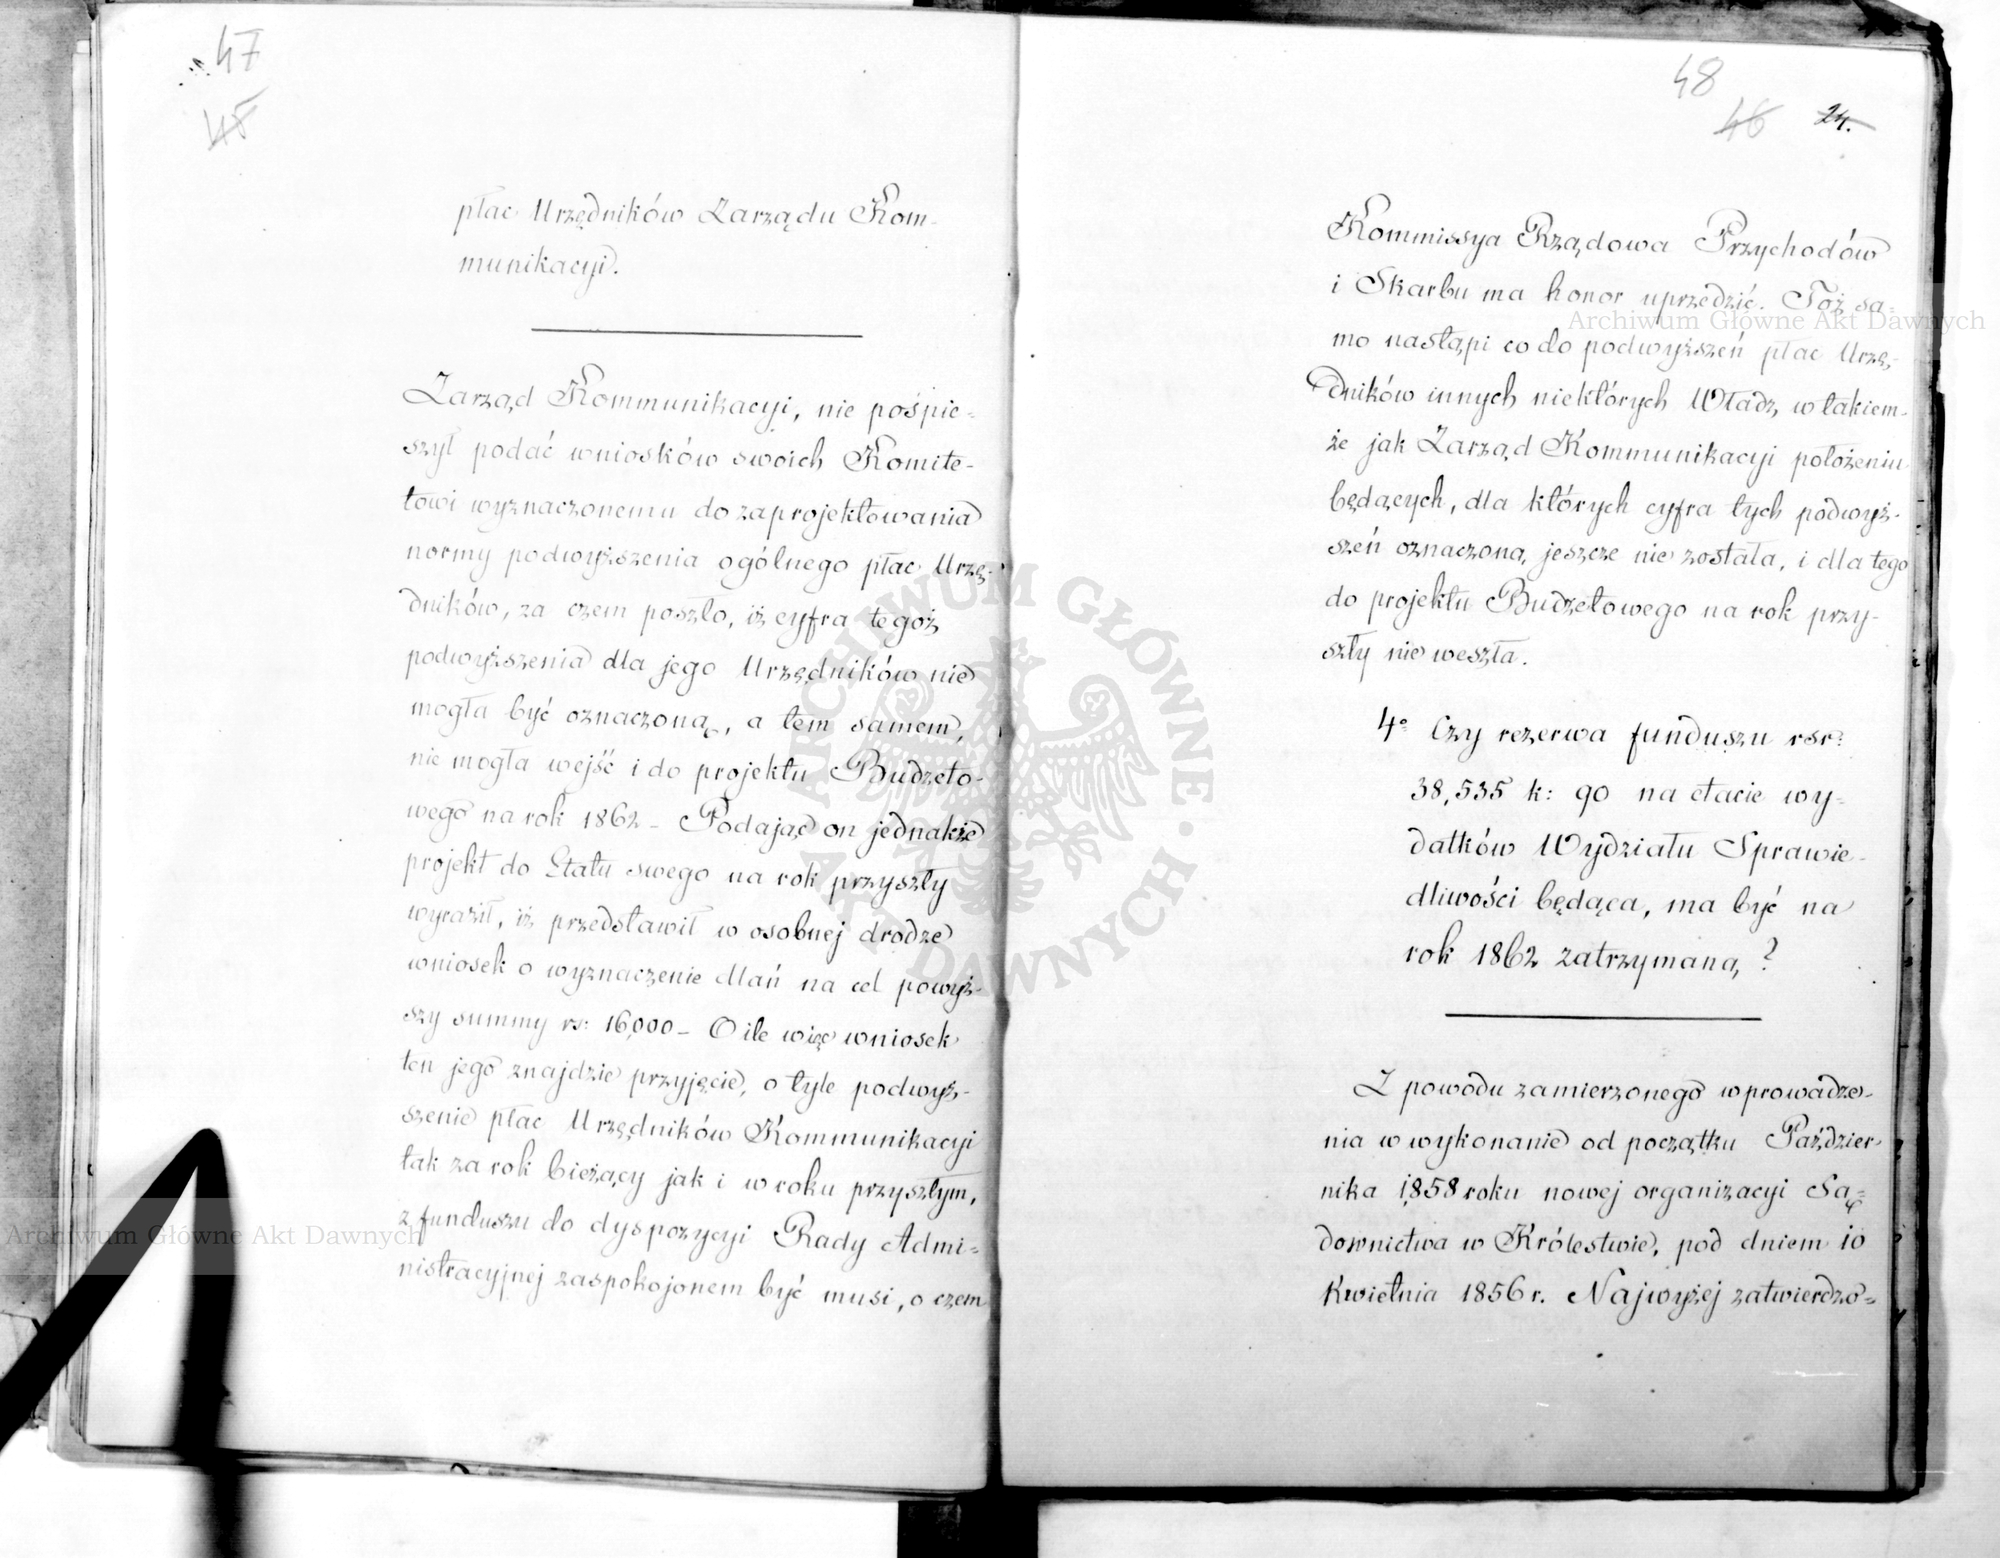 47
45
płac Urzędników Zarządu Kom-
munikacyi.
Zarząd Kommunikacyi, nie pośpie-
szył podać wniosków swoich Komite-
towi wyznaczonemu do zaprojektowania
normy podwyższenia ogólnego płac Urzę-
dników, za czem poszło, iż cyfra tegoż
podwyższenia dla jego Urzędników nie
mogła być oznaczoną, a tem samem,
nie mogła wejść i do projektu Budżeto-
wego na rok 1862 - Podając on jednakże
projekt do Etatu swego na rok przyszły
wyraził, iż przedstawił w osobnej drodze
wniosek o wyznaczenie dlań na cel powyż-
szy summy rs: 16,000 - O ile więc wniosek
ten jego znajdzie przyjęcie, o tyle podwyż-
szenie płac Urzędników Kommunikacyi
tak za rok bieżący jak i w roku przyszłym,
z funduszu do dyspozycyi Rady Admi-
nistracyjnej zaspokojonem być musi, o czem
48
46 24.
Kommissya Rządowa Przychodów
i Skarbu ma honor uprzedzić. Toż sa-
mo nastąpi co do podwyższeń płac Urzę-
dników innych niektórych Władz, w takiem-
że jak Zarząd Kommunikacyi położeniu
będących, dla których cyfra tych podwyż-
szeń oznaczoną jeszcze nie została, i dla tego
do projektu Budżetowego na rok przy-
szły nie weszła.
4° Czy rezerwa funduszu rsr:
38,535 k: 90 na etacie wy-
datków Wydziału Sprawie-
dliwości będąca, ma być na
rok 1862 zatrzymaną?
Z powodu zamierzonego wprowadze-
nia w wykonanie od początku Paździer-
nika 1858 roku nowej organizacyi Są-
downictwa w Królestwie, pod dniem 10
Kwietnia 1856 r. Najwyżej zatwierdzo-
Archiwum Główne Akt Dawnych
Archiwum Główne Akt Dawnych
ARCHIWUM GŁÓWNE · AKT DAWNYCH ·